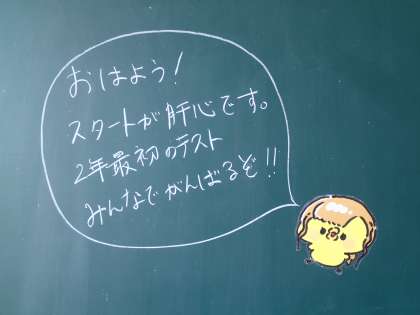 おはよう!
スタートが肝心です。
2年最初のテスト
みんなでがんばるぞ!!